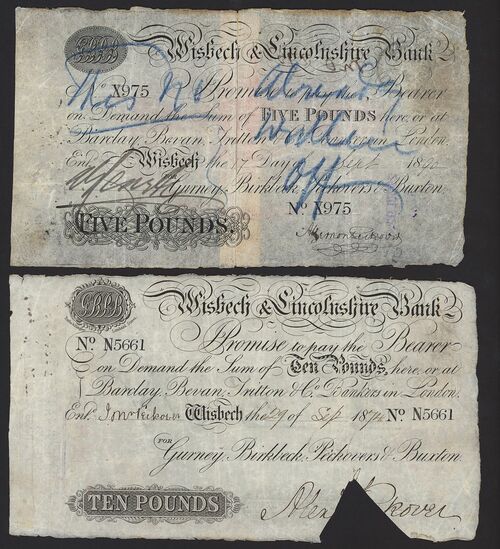 GBPB
Wisbech & Lincolnshire Bank
No X975 Promise to pay the Bearer
on Demand the Sum of FIVE POUNDS here, or at
Barclay, Bevan, Tritton & Co. Bankers in London.
Entd. Wisbech the 17 Day of Sept 18
Gurney, Birkbeck, Peckovers & Buxton
No X975
FIVE POUNDS.
GBPB
Wisbech & Lincolnshire Bank
No N5661 Promise to pay the Bearer
on Demand the Sum of Ten Pounds, here, or at
Barclay, Bevan, Tritton & Co. Bankers in London.
Entd. Jon Peckover Wisbech the 29 of Sep 187 No N5661
FOR
Gurney, Birkbeck, Peckovers & Buxton
TEN POUNDS Alex Peckover